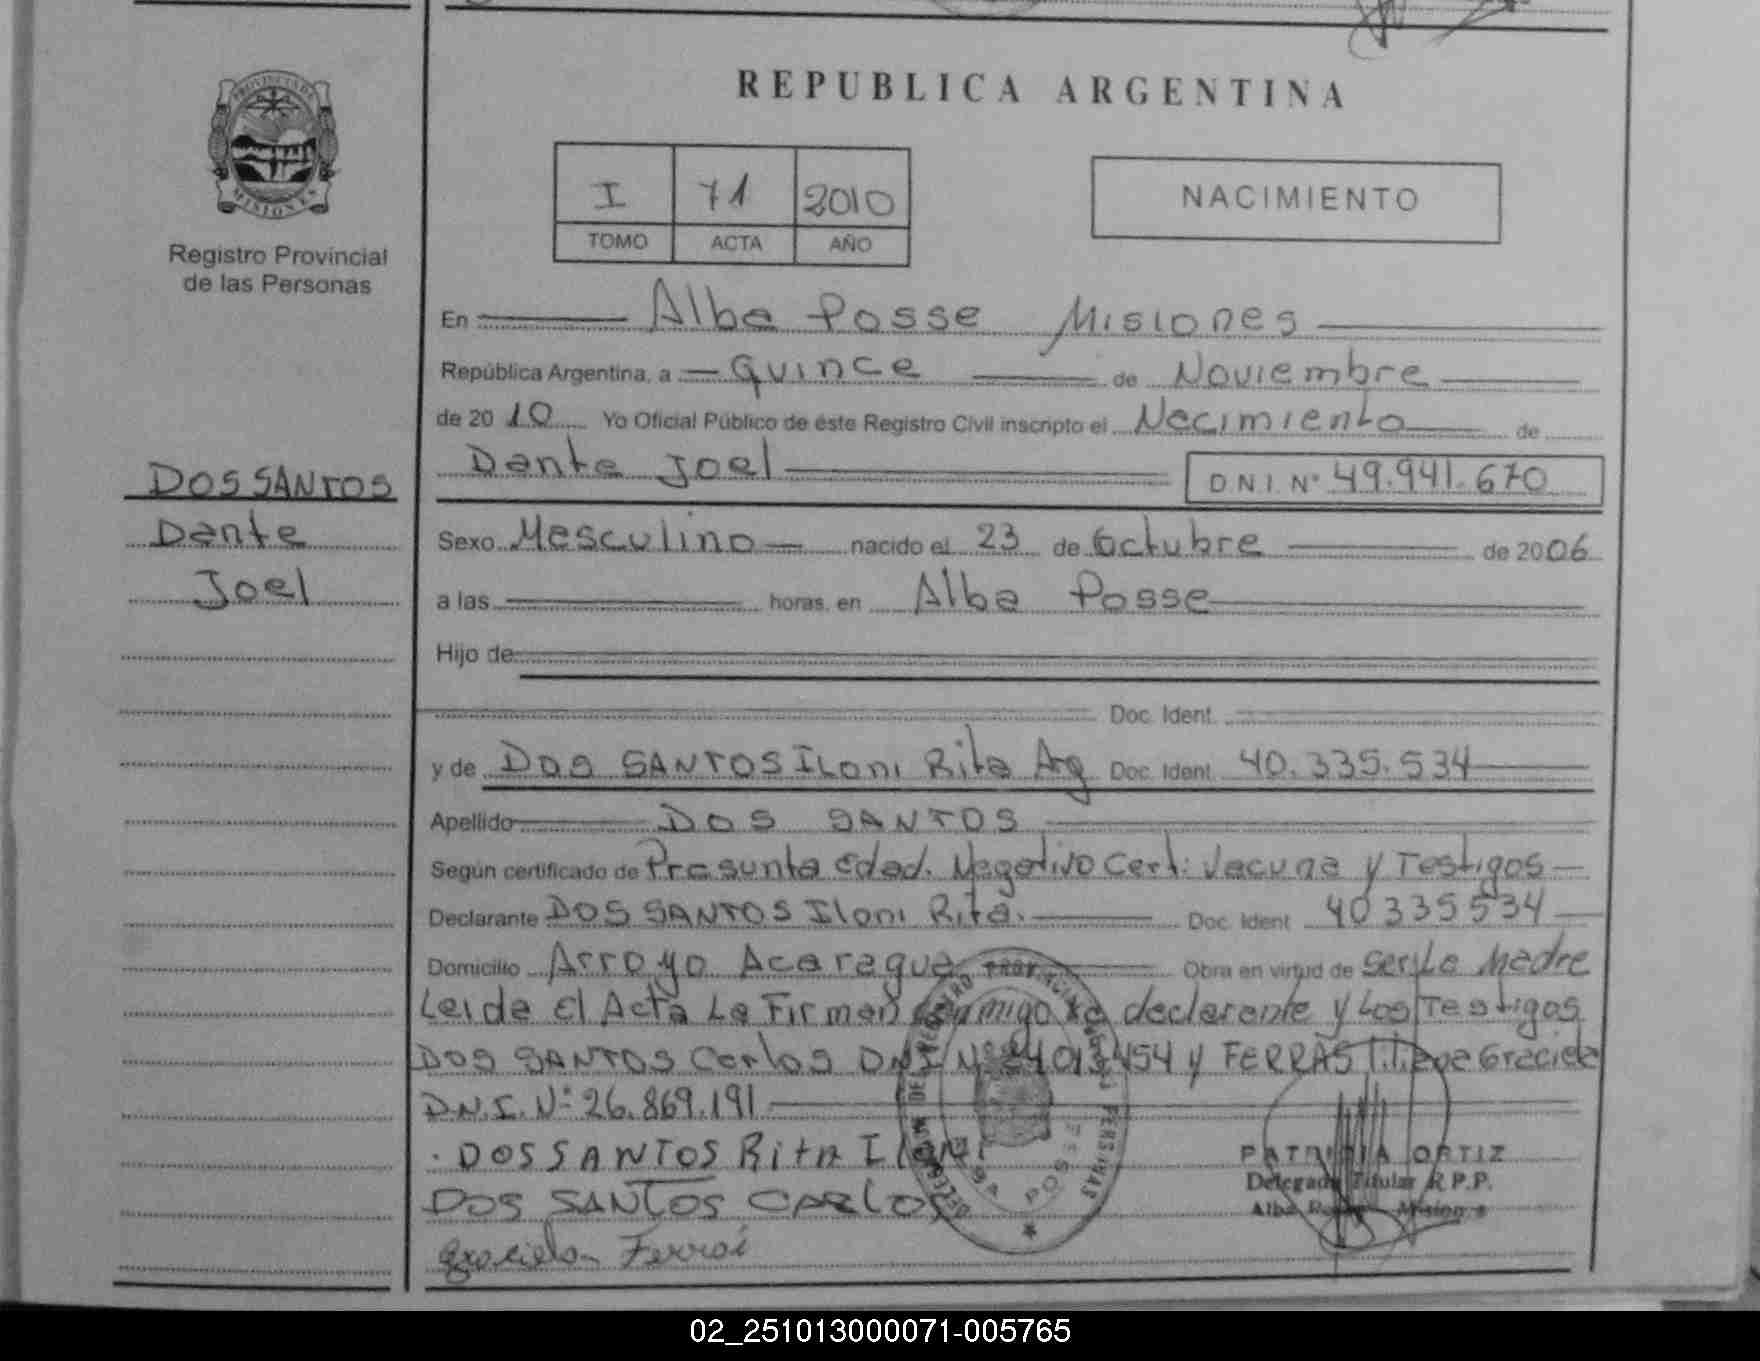 REPUBLICA ARGENTINA
PROVINCIA DE MISIONES
Registro Provincial
de las Personas
I 71 2010
TOMO ACTA AÑO
NACIMIENTO
En Alba Posse Misiones
República Argentina, a Quince de Noviembre
de 2010 Yo Oficial Público de éste Registro Civil inscripto el Nacimiento de
Dante Joel D N I. Nº 49.941.670
DOS SANTOS
Dante
Joel
Sexo Masculino nacido el 23 de Octubre de 2006
a las horas, en Alba Posse
Hijo de
Doc. Ident.
y de DOS SANTOS ILoni Rita Arg Doc. Ident. 40.335.534
Apellido DOS SANTOS
Según certificado de Presunta Edad. Negativo Cert: Vacuna y Testigos
Declarante DOS SANTOS Iloni Rita. Doc. Ident 40335534
Domicilio Arroyo Acaragua Obra en virtud de Ser La Madre
Leida El Acta La Firman Conmigo La declarante y Los Testigos
DOS SANTOS Carlos DNI Nº 454 y FERRAS Graciela
D.N.I. Nº 26.869.191
DOS SANTOS Rita Iloni
DOS SANTOS CARLOS
Graciela
PATRICIA ORTIZ
Delegada Titular R.P.P.
Alba Posse Misiones
DELEGACION DEL REGISTRO PROVINCIAL DE LAS PERSONAS
ALBA POSSE
02_251013000071-005765